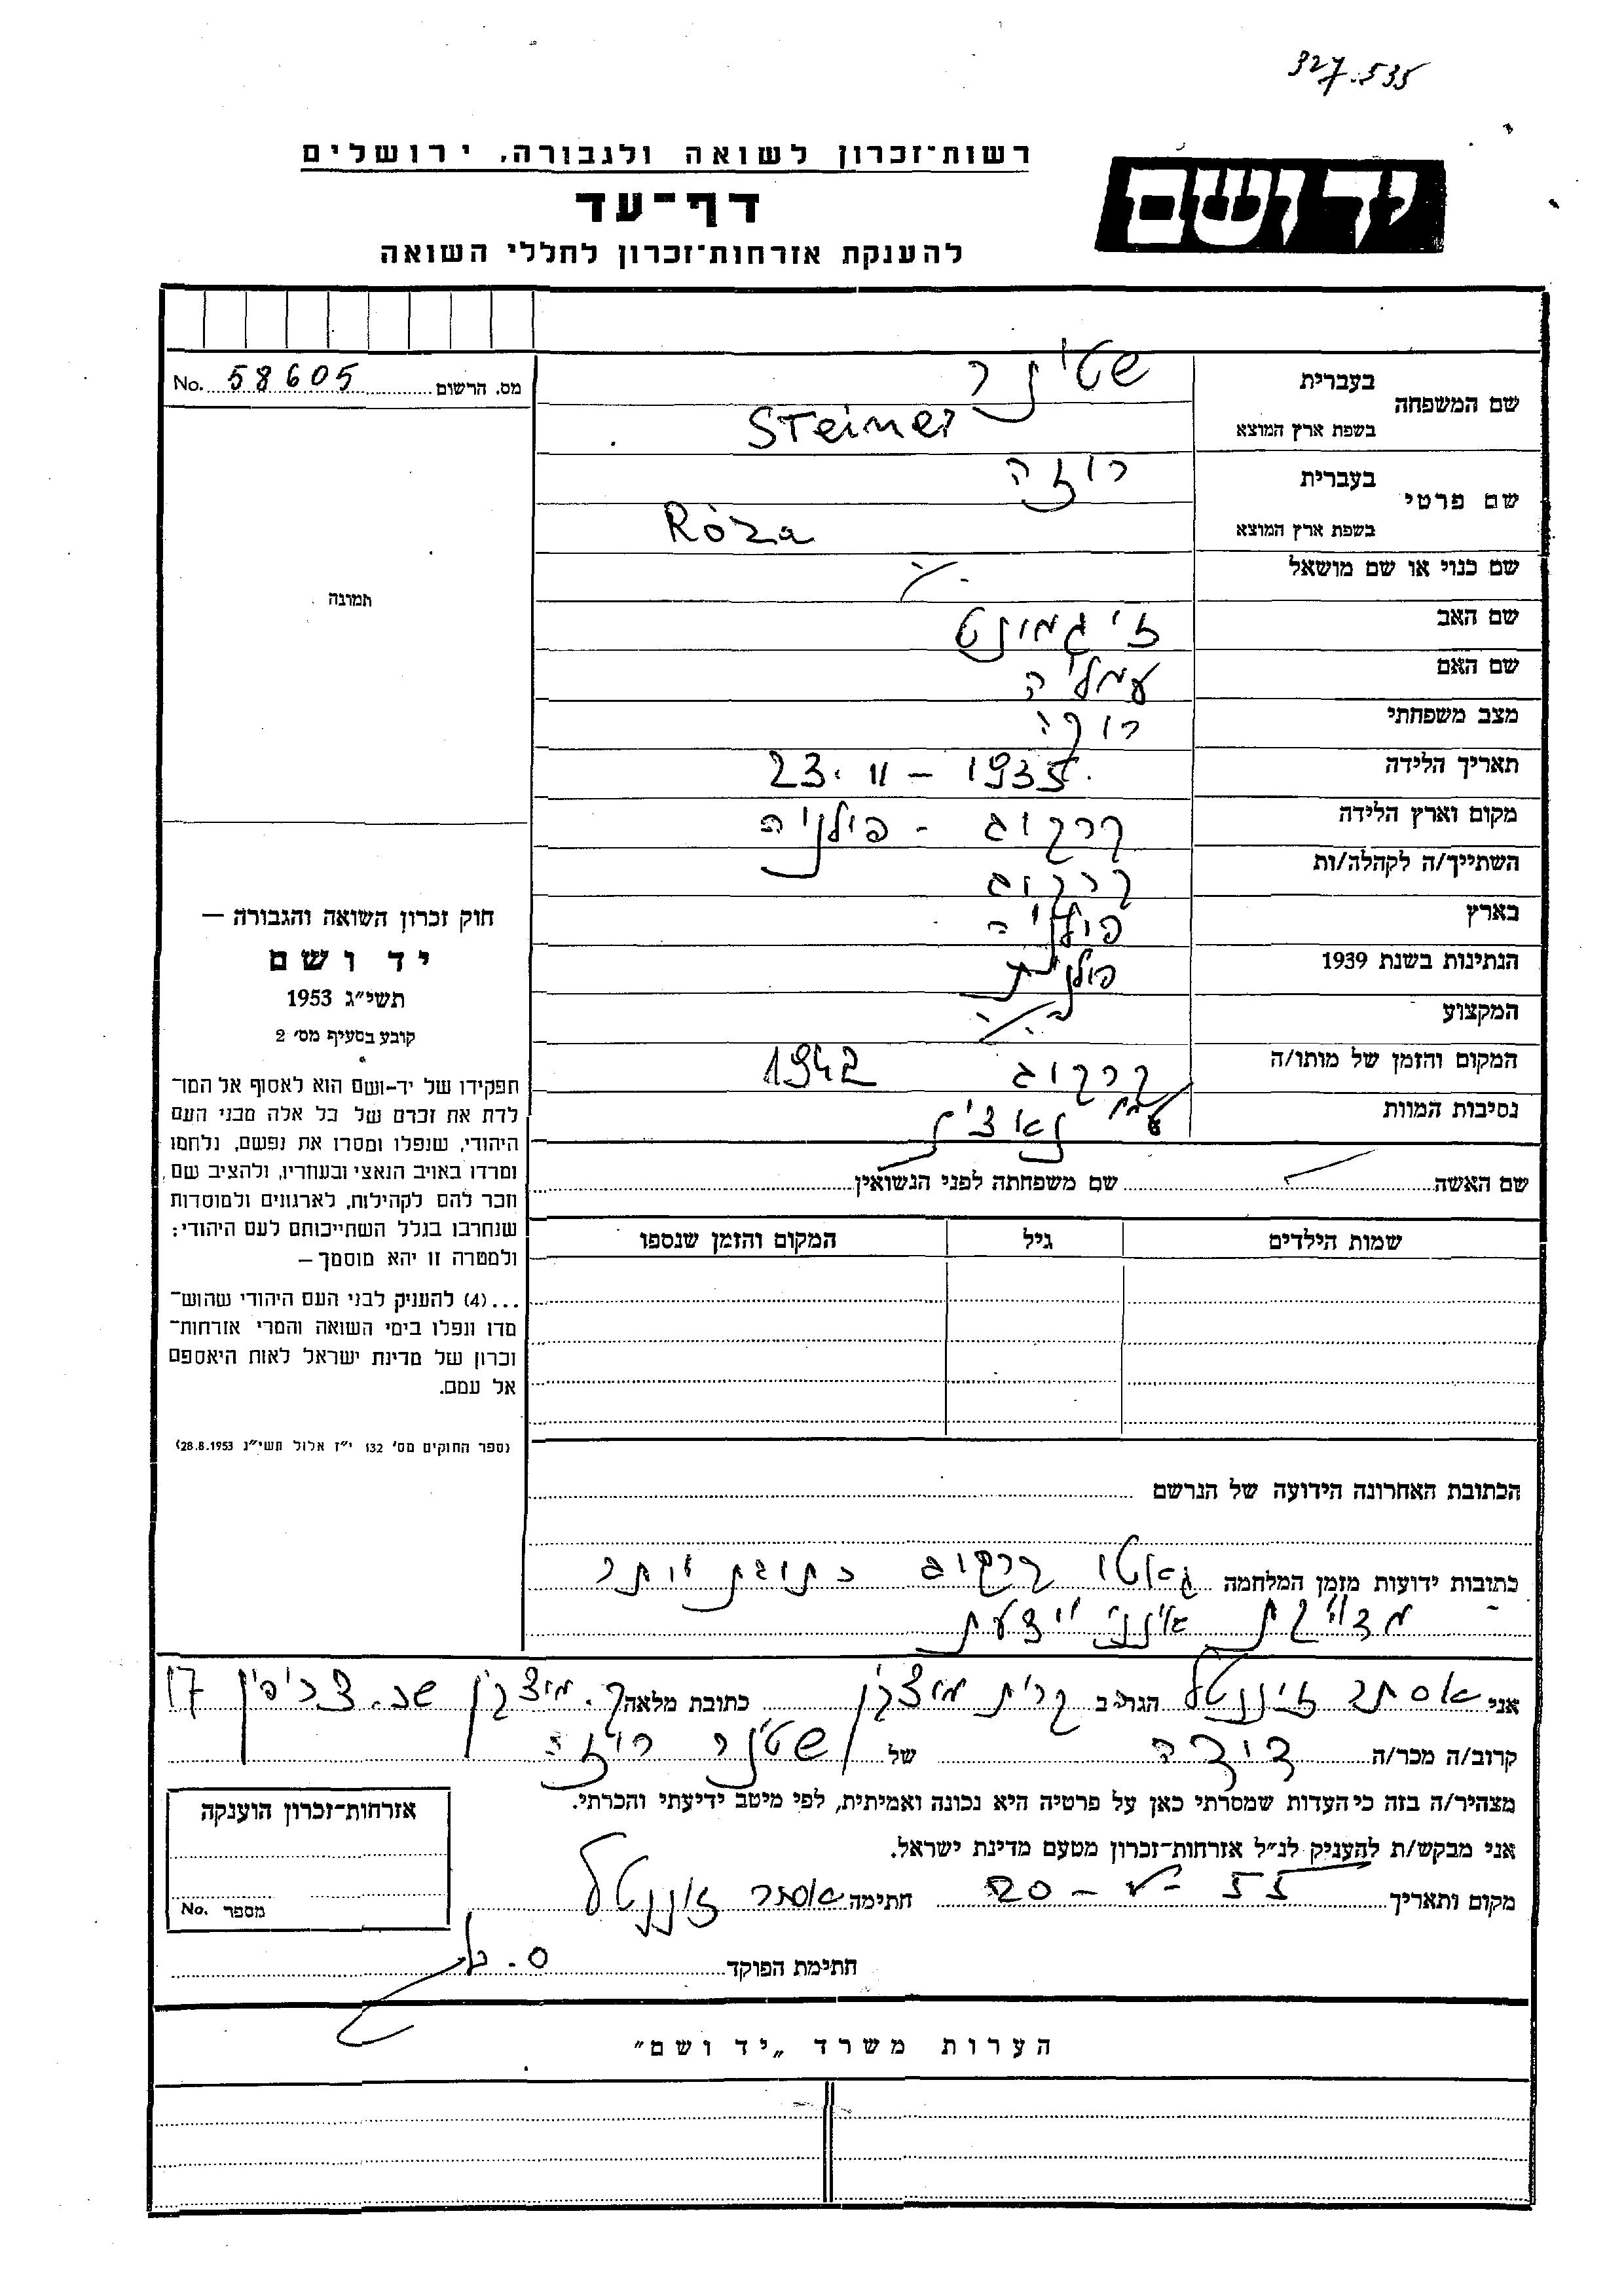 327.535
רשות־זכרון לשואה ולגבורה, ירושלים
דף־עד
להענקת אזרחות־זכרון לחללי השואה
יד ושם
שם המשפחה
בעברית
שטינר
בשפת ארץ המוצא
Steiner
מס. הרשום 58605 No.
שם פרטי
בעברית
רוזה
בשפת ארץ המוצא
Róza
שם כנוי או שם מושאל
תמונה
שם האב זיגמונט
שם האם עמליה
מצב משפחתי רוקה
תאריך הלידה 23. II – 1935
מקום וארץ הלידה קרקוב - פולניה
השתייך/ה לקהלה/ות קרקוב
בארץ פולניה
הנתינות בשנת 1939 פולנית
המקצוע
המקום והזמן של מותו/ה קרקוב 1942
נסיבות המוות נאצית
שם האשה שם משפחתה לפני הנשואין
שמות הילדים גיל המקום והזמן שנספו
חוק זכרון השואה והגבורה —
יד ושם
תשי״ג 1953
קובע בסעיף מס׳ 2
תפקידו של יד-ושם הוא לאסוף אל המו־
לדת את זכרם של כל אלה מבני העם
היהודי, שנפלו ומסרו את נפשם, נלחמו
ומרדו באויב הנאצי ובעוזריו, ולהציב שם
וזכר להם לקהילות, לארגונים ולמוסדות
שנחרבו בגלל השתייכותם לעם היהודי:
ולמטרה זו יהא מוסמך —
...(4) להעניק לבני העם היהודי שהוש־
מדו ונפלו בימי השואה והמרי אזרחות־
זכרון של מדינת ישראל לאות היאספם
אל עמם.
(ספר החוקים מס׳ 132 י״ז אלול תשי״ג 28.8.1953)
הכתובת האחרונה הידועה של הנרשם
כתובות ידועות מזמן המלחמה גאטו קרקוב כתובת יותר
מדוייקת אינני יודעת
אני אסתר זיננטל הגר/ה ב קרית מוצקין כתובת מלאה ק. מוצקין שכ. צריפין 17
קרוב/ה מכר/ה דודה של שטינר רוזה
מצהיר/ה בזה כי העדות שמסרתי כאן על פרטיה היא נכונה ואמיתית, לפי מיטב ידיעתי והכרתי.
אני מבקש/ת להעניק לנ״ל אזרחות־זכרון מטעם מדינת ישראל.
מקום ותאריך חתימה אסתר זיננטל
חתימת הפוקד
אזרחות־זכרון הוענקה
מספר No.
הערות משרד „יד ושם״